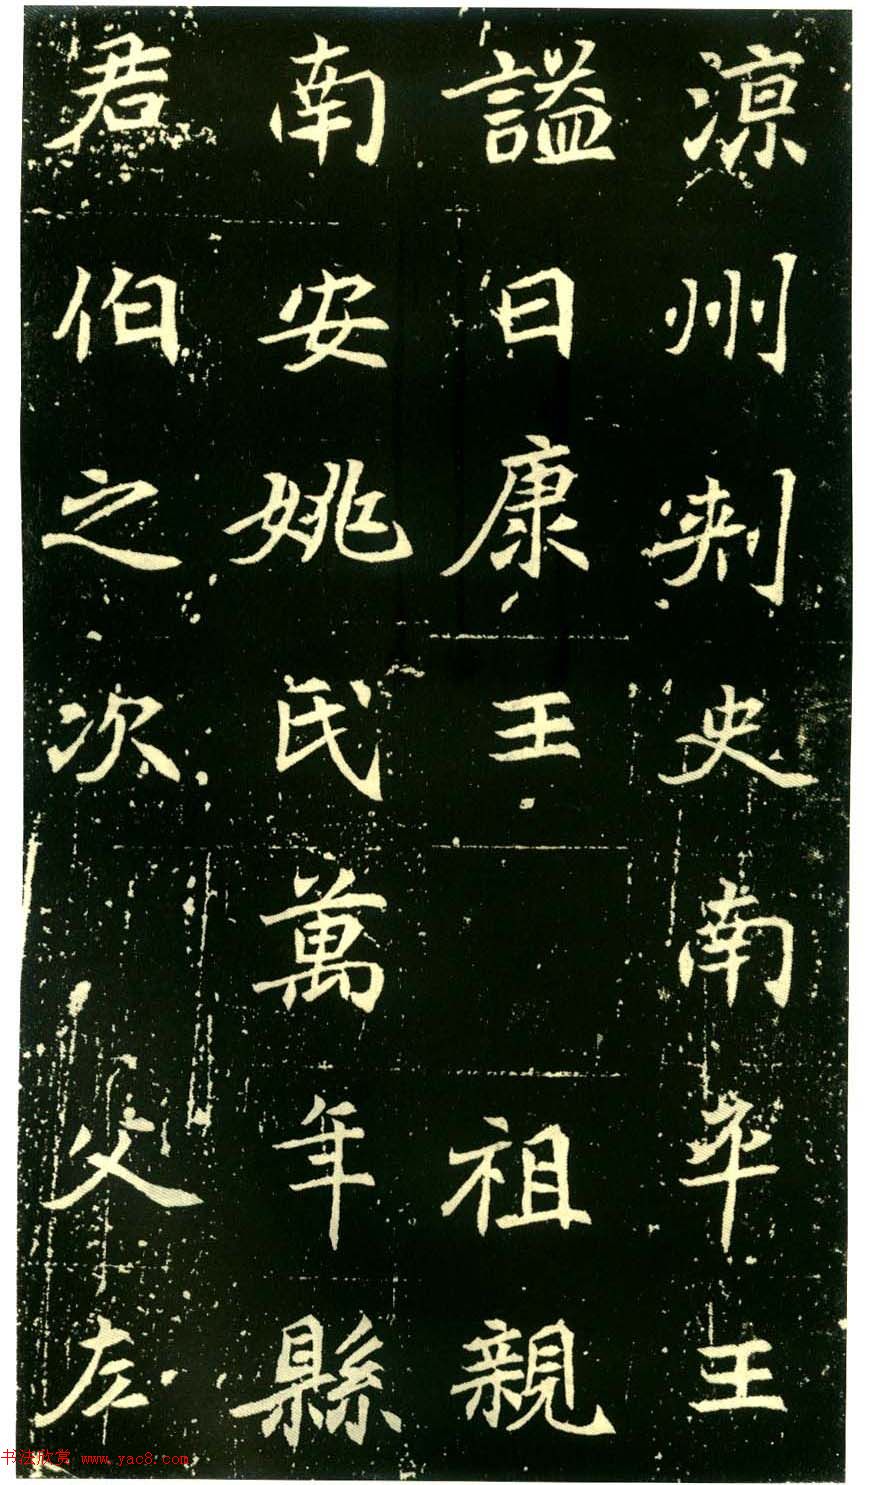 涼州刺史南平王
謚曰康王 祖親
南安姚氏萬年縣
君伯之次 父左
书法欣赏 www.yac8.com